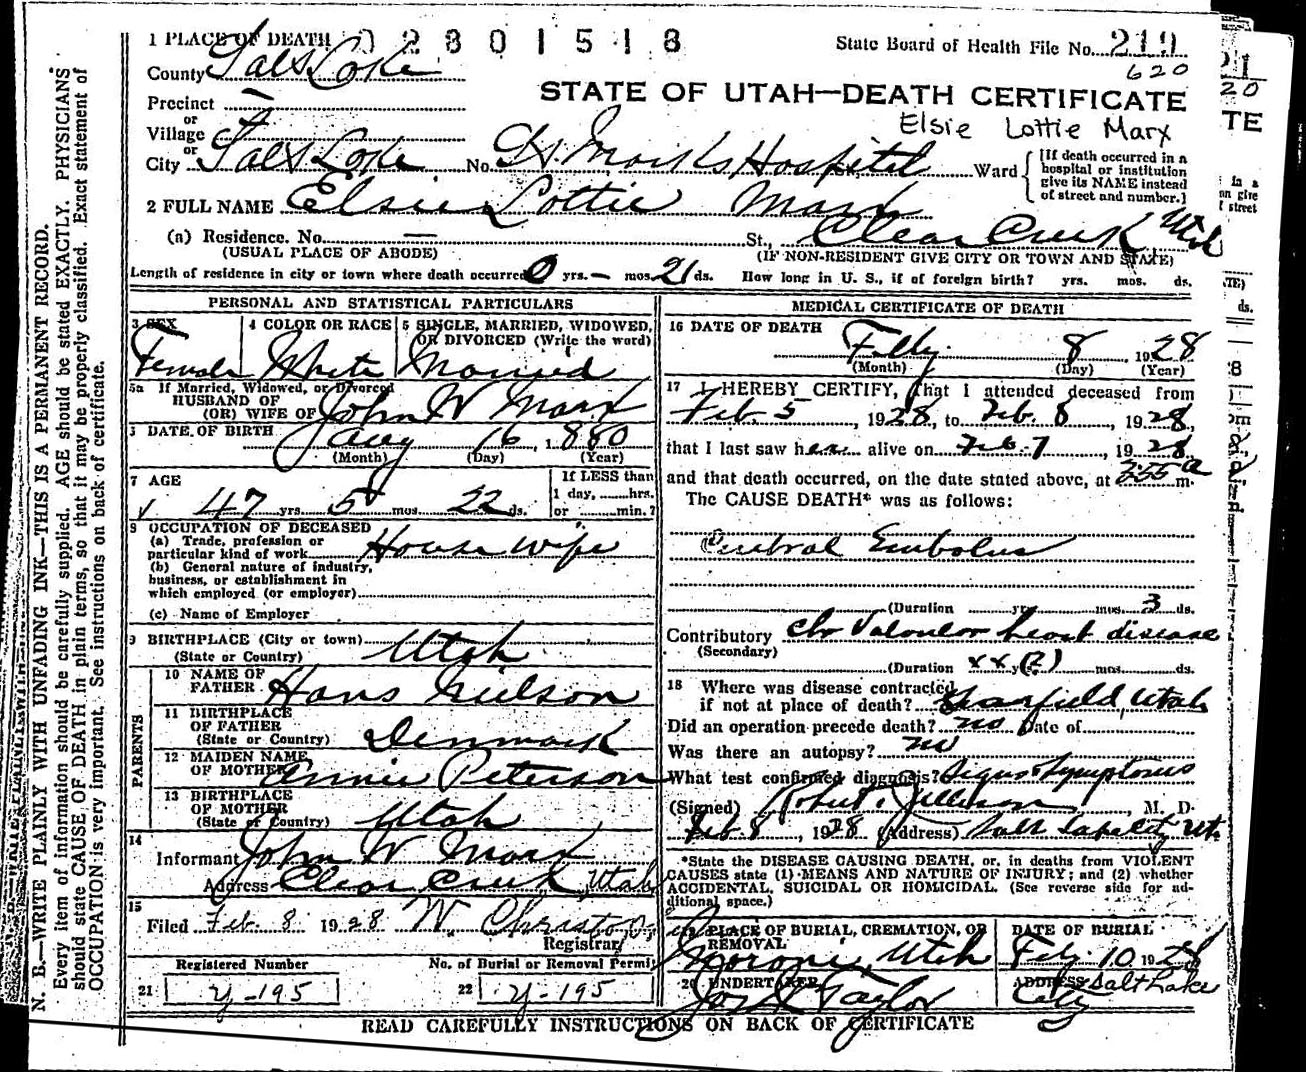 1 PLACE OF DEATH 02801518
State Board of Health File No. 219
620
County Salt Lake
STATE OF UTAH—DEATH CERTIFICATE
Precinct —
or
Elsie Lottie Marx
Village
or
City Salt Lake No. St Marks Hospital St., Ward
[If death occurred in a hospital or institution give its NAME instead of street and number.]
2 FULL NAME Elsie Lottie Marx
(a) Residence. No. — St., Clear Creek Utah
(USUAL PLACE OF ABODE)
(IF NON-RESIDENT GIVE CITY OR TOWN AND STATE)
Length of residence in city or town where death occurred 0 yrs. — mos. 21 ds. How long in U. S., if of foreign birth? yrs. mos. ds.
PERSONAL AND STATISTICAL PARTICULARS
3 SEX
Female
4 COLOR OR RACE
White
5 SINGLE, MARRIED, WIDOWED, OR DIVORCED (Write the word)
Married
5a If Married, Widowed, or Divorced
HUSBAND OF
(OR) WIFE OF John W Marx
DATE OF BIRTH 16, 1880
(Month) (Day) (Year)
7 AGE
47 yrs 5 mos 22 ds.
If LESS than
1 day, hrs.
or min.?
8 OCCUPATION OF DECEASED
(a) Trade, profession or
particular kind of work House wife
(b) General nature of industry,
business, or establishment in
which employed (or employer)
(c) Name of Employer
9 BIRTHPLACE (City or town)
(State or Country) Utah
PARENTS
10 NAME OF
FATHER Hans Nielson
11 BIRTHPLACE
OF FATHER
(State or Country) Denmark
12 MAIDEN NAME
OF MOTHER Annie Peterson
13 BIRTHPLACE
OF MOTHER
(State or Country) Utah
14
Informant John W Marx
Address Clear Creek, Utah
15
Filed Feb. 8 1928 W. Christo
Registrar
Registered Number
No. of Burial or Removal Permit
21 y-195
22 y-195
MEDICAL CERTIFICATE OF DEATH
16 DATE OF DEATH
Feby 8 1928
(Month) (Day) (Year)
17 I HEREBY CERTIFY, that I attended deceased from
Feb 5, 1928, to Feb. 8, 1928,
that I last saw her alive on Feb. 7, 1928
and that death occurred, on the date stated above, at 3:55 a m.
The CAUSE DEATH* was as follows:
Cerebral Embolus
(Duration yrs. mos. 3 ds.
Contributory Chr Valvular heart disease
(Secondary)
(Duration xx y(?) mos. ds.
18 Where was disease contracted
if not at place of death? Utah
Did an operation precede death? no Date of
Was there an autopsy? no
What test confirmed diagnosis? Signs & Symptoms
(Signed) Robert, M. D.
Feb 8, 1928 (Address) Salt Lake City Ut.
*State the DISEASE CAUSING DEATH, or, in deaths from VIOLENT
CAUSES state (1) MEANS AND NATURE OF INJURY; and (2) whether
ACCIDENTAL, SUICIDAL OR HOMICIDAL. (See reverse side for ad-
ditional space.)
19 PLACE OF BURIAL, CREMATION, OR
REMOVAL
Moroni, Utah
DATE OF BURIAL
Feby. 10 1928
20 UNDERTAKER
Taylor
ADDRESS Salt Lake
City
READ CAREFULLY INSTRUCTIONS ON BACK OF CERTIFICATE
N. B.—WRITE PLAINLY WITH UNFADING INK—THIS IS A PERMANENT RECORD.
Every item of information should be carefully supplied. AGE should be stated EXACTLY. PHYSICIANS
should state CAUSE OF DEATH in plain terms, so that it may be properly classified. Exact statement of
OCCUPATION is very important. See instructions on back of certificate.